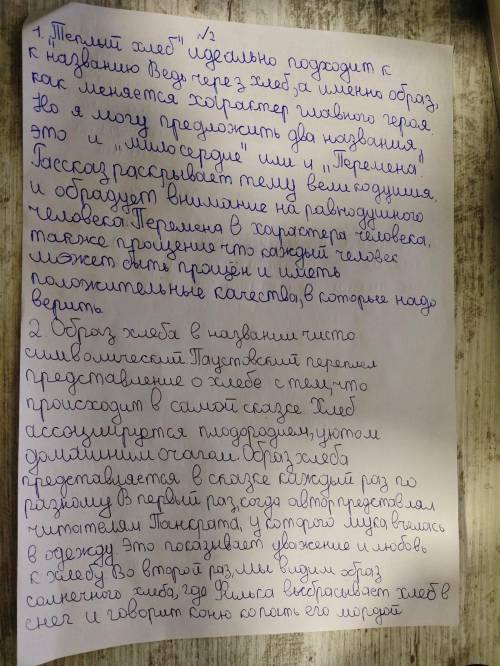 №2
1. "Теплый хлеб" идеально подходит к
к названию Ведь через хлеб, а именно образ,
как меняется характер главного героя.
Но я могу предложить два названия
это и „Милосердие" или и „Перемена".
Рассказ раскрывает тему великодушия,
и обрадует внимание на равнодушного
человека. Перемена в характера человека,
также прощения что каждый человек
может быть прощён и иметь
положительные качества, в которые надо
верить
2 Образ хлеба в названии чисто
символический Паустовский переплел
представление о хлебе с тем, что
происходит в самой сказке Хлеб
ассоциируется плодородием, уютом
домашним очагом. Образ хлеба
представляется в сказке каждый раз по
разному В первый раз, когда автор представлял
читателям Панкрата, у которого мука въелась
в одежду Это показывает уважение и любовь
к хлебу Во второй раз, мы видим образ
солнечного хлеба, где Филька выбрасывает хлеб в
снег и говорит коню копать его мордой